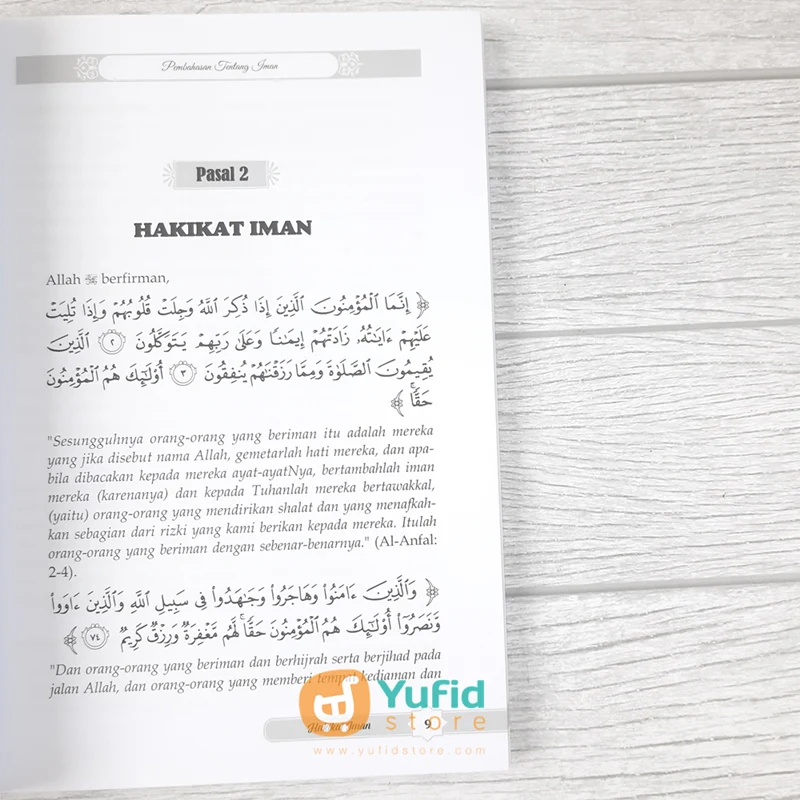 Pembahasan Tentang Iman
Pasal 2
HAKIKAT IMAN
Allah ﷻ berfirman,
﴿ إِنَّمَا ٱلْمُؤْمِنُونَ ٱلَّذِينَ إِذَا ذُكِرَ ٱللَّهُ وَجِلَتْ قُلُوبُهُمْ وَإِذَا تُلِيَتْ
عَلَيْهِمْ ءَايَـٰتُهُۥ زَادَتْهُمْ إِيمَـٰنًا وَعَلَىٰ رَبِّهِمْ يَتَوَكَّلُونَ ٢ ٱلَّذِينَ
يُقِيمُونَ ٱلصَّلَوٰةَ وَمِمَّا رَزَقْنَـٰهُمْ يُنفِقُونَ ٣ أُو۟لَـٰٓئِكَ هُمُ ٱلْمُؤْمِنُونَ
حَقًّا ۚ ﴾
"Sesungguhnya orang-orang yang beriman itu adalah mereka
yang jika disebut nama Allah, gemetarlah hati mereka, dan apa-
bila dibacakan kepada mereka ayat-ayatNya, bertambahlah iman
mereka (karenanya) dan kepada Tuhanlah mereka bertawakkal,
(yaitu) orang-orang yang mendirikan shalat dan yang menafkah-
kan sebagian dari rizki yang kami berikan kepada mereka. Itulah
orang-orang yang beriman dengan sebenar-benarnya." (Al-Anfal:
2-4).
﴿ وَٱلَّذِينَ ءَامَنُوا۟ وَهَاجَرُوا۟ وَجَـٰهَدُوا۟ فِى سَبِيلِ ٱللَّهِ وَٱلَّذِينَ ءَاوَوا۟
وَّنَصَرُوٓا۟ أُو۟لَـٰٓئِكَ هُمُ ٱلْمُؤْمِنُونَ حَقًّا ۚ لَّهُم مَّغْفِرَةٌ وَرِزْقٌ كَرِيمٌ ٧٤ ﴾
"Dan orang-orang yang beriman dan berhijrah serta berjihad pada
jalan Allah, dan orang-orang yang memberi tempat kediaman dan
Hakikat Iman 9
Yufid
store
www.yufidstore.com